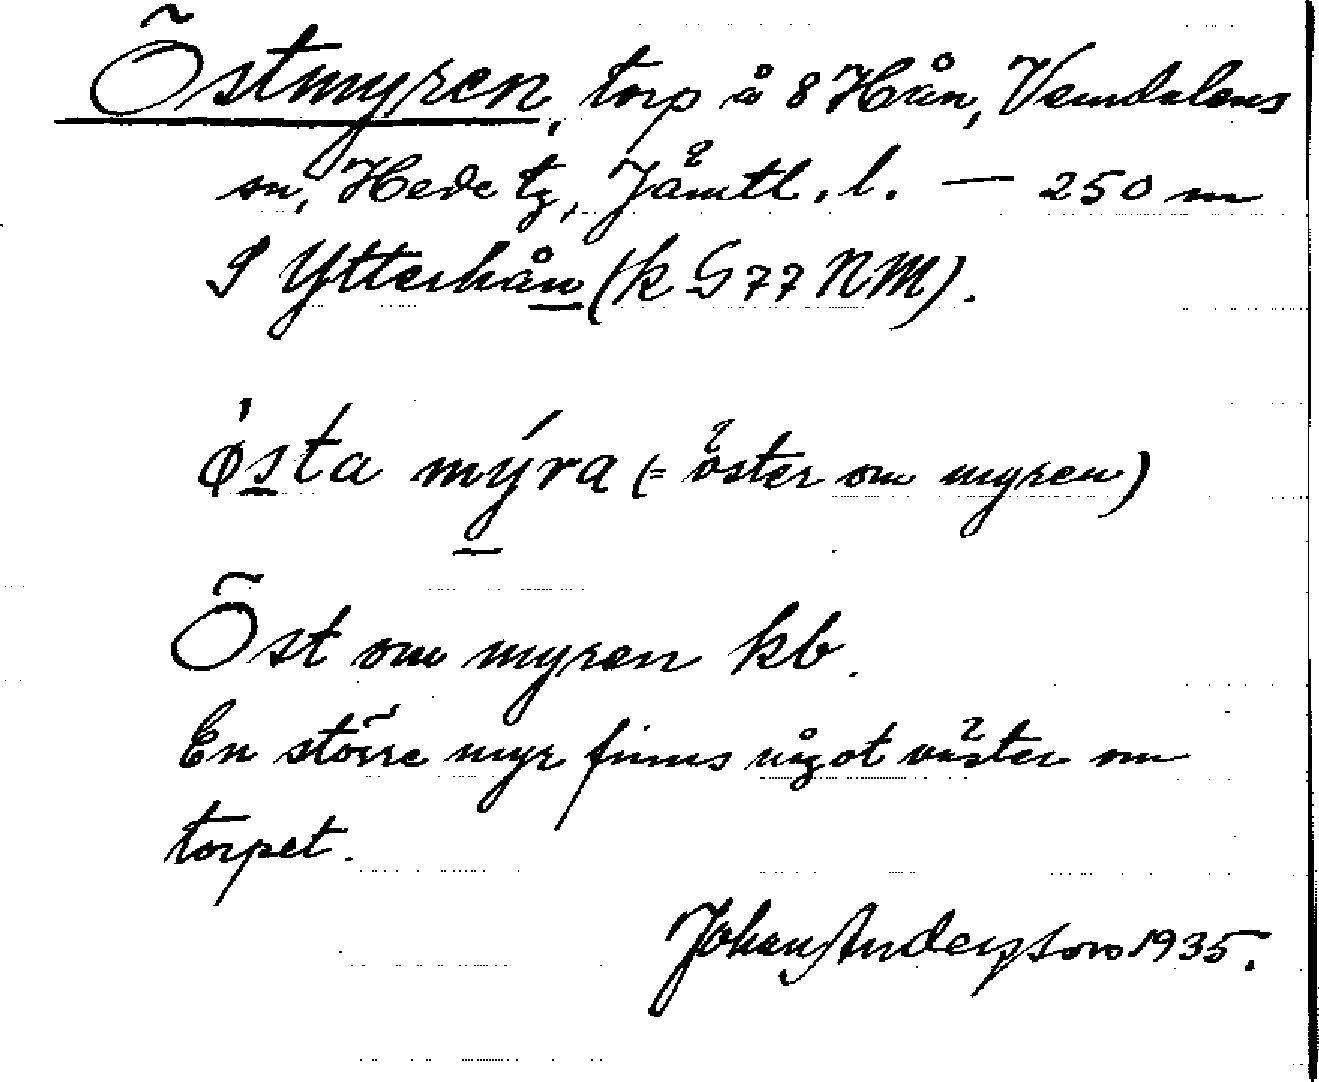 Östmyren, torp å 8 Hån, Vemdalens
sn, Hede tg, Jämtl. l. — 250 m
S Ytterhån (k G 77 NM).
østa mýra (= öster om myren)
Öst om myren kb.
En större myr finns något väster om
torpet.
Johan Anderson 1935.